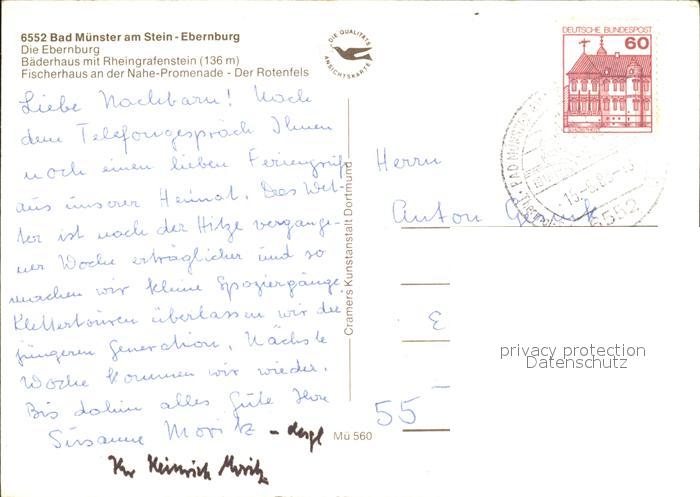 6552 Bad Münster am Stein - Ebernburg
Die Ebernburg
Bäderhaus mit Rheingrafenstein (136 m)
Fischerhaus an der Nahe-Promenade - Der Rotenfels
DIE QUALITÄTS
ANSICHTSKARTE
DEUTSCHE BUNDESPOST
60
Liebe Nachbarn! Nach
dem Telefongespräch Ihnen
noch einen lieben Feriengruß
aus unserer Heimat. Das Wet-
ter ist nach der Hitze vergange-
ner Woche erträglicher und so
machen wir kleine Spaziergänge.
Klettertouren überlassen wir der
jüngeren Generation. Nächste
Woche kommen wir wieder.
Bis dahin alles Gute Ihre
Susanne Moritz - desgl
Ihr Heinrich Moritz
Cramers Kunstanstalt Dortmund
Mü 560
Herrn
Anton
E
55
BAD MÜNSTER
6552
privacy protection
Datenschutz